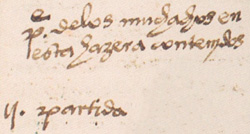 p. delos muchachos en
esta hazera contenidos
ij. partida